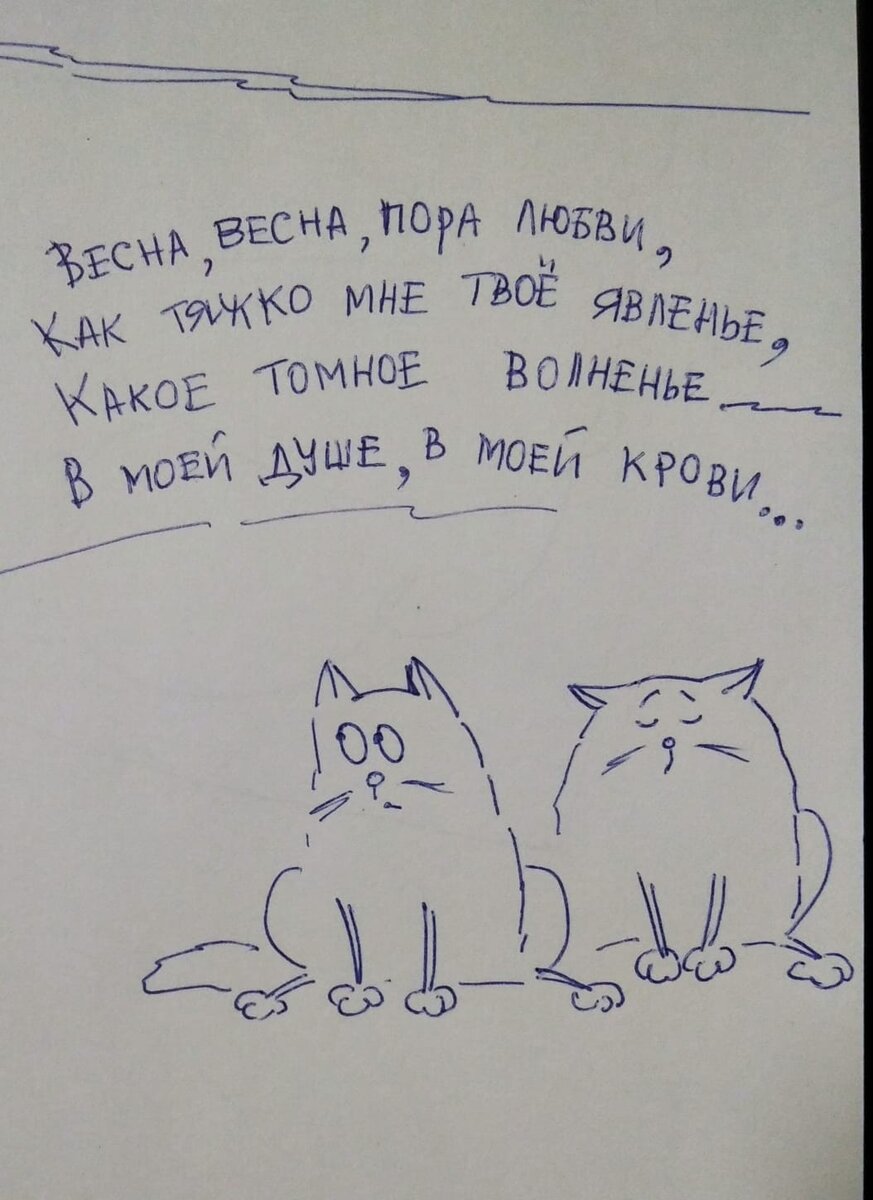 ВЕСНА, ВЕСНА, ПОРА ЛЮБВИ,
КАК ТЯЖКО МНЕ ТВОЁ ЯВЛЕНЬЕ,
КАКОЕ ТОМНОЕ ВОЛНЕНЬЕ
В МОЕЙ ДУШЕ, В МОЕЙ КРОВИ...